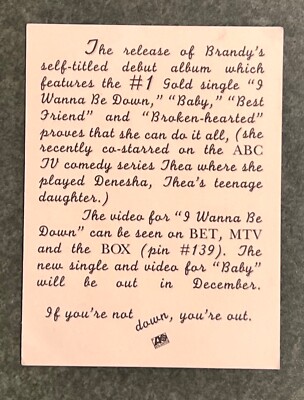 The release of Brandy's
self-titled debut album which
features the #1 Gold single "I
Wanna Be Down," "Baby," "Best
Friend" and "Broken-hearted"
proves that she can do it all, (she
recently co-starred on the ABC
TV comedy series Thea where she
played Denesha, Thea's teenage
daughter.)
The video for "I Wanna Be
Down" can be seen on BET, MTV
and the BOX (pin #139). The
new single and video for "Baby"
will be out in December.
If you're not down, you're out.